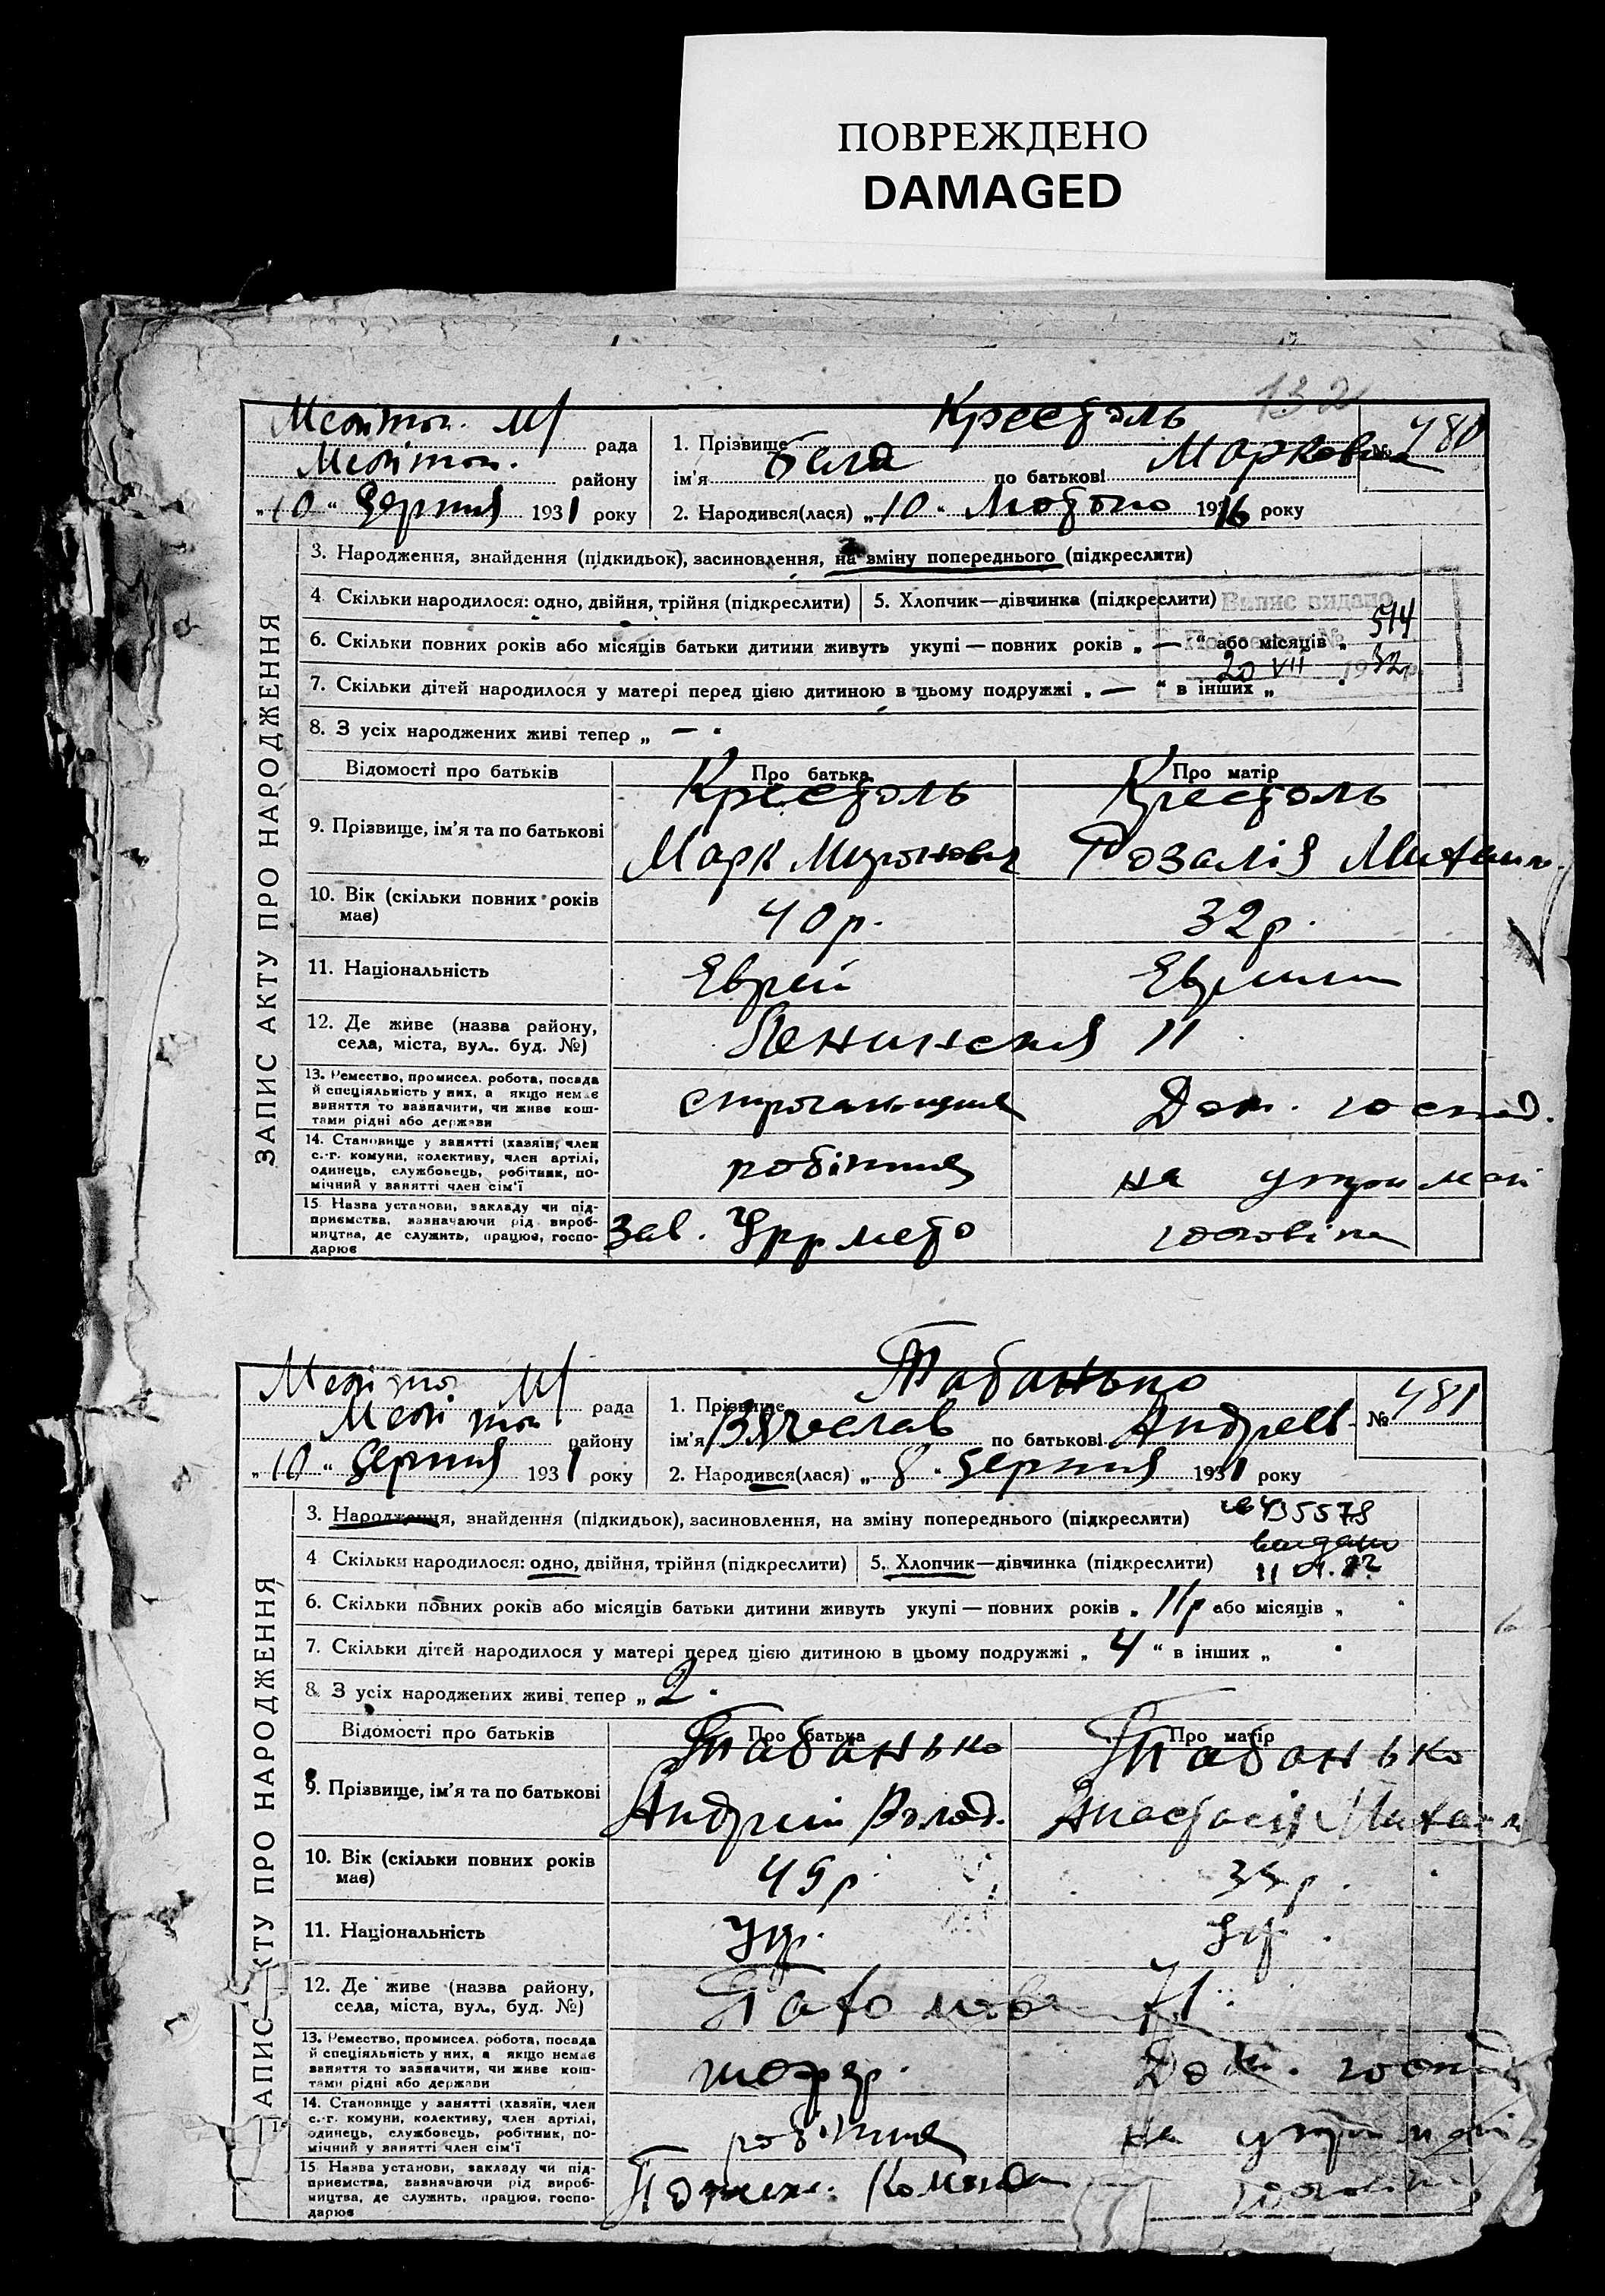 ПОВРЕЖДЕНО
DAMAGED
132
Меліton. М/ рада
Меліton. району
„10“ Серпня 1931 року
1. Прізвище Кресталь
ім'я Бела по батькові Марковна
№ 480
2. Народився(лася) „10“ Лютого 1916 року
ЗАПИС АКТУ ПРО НАРОДЖЕННЯ
3. Народження, знайдення (підкидьок), засиновлення, на зміну попереднього (підкреслити)
4 Скільки народилося: одно, двійня, трійня (підкреслити) 5. Хлопчик—дівчинка (підкреслити)
Випис видано
514
20 VII 1932р
6. Скільки повних років або місяців батьки дитини живуть укупі — повних років „ — “ або місяців „
7. Скільки дітей народилося у матері перед цією дитиною в цьому подружжі „ — “ в інших „
8. З усіх народжених живі тепер „ — “
Відомості про батьків Про батька Про матір
9. Прізвище, ім'я та по батькові
Кресталь Кресталь
Марк Миронович Розалія Михайл.
10. Вік (скільки повних років має) 40 р. 32 р.
11. Національність Еврей
12. Де живе (назва району, села, міста, вул. буд. №) Ленинская 11
13. Ремество, промисел. робота, посада
й спеціяльність у них, а якщо немає
заняття то зазначити, чи живе кош-
тами рідні або держави
Дом. господ.
14. Становище у занятті (хазяїн, член
с.-г. комуни, колективу, член артілі,
одинець, службовець, робітник, по-
мічний у занятті член сім'ї
робітник на утриман
15 Назва установи, закладу чи під-
приємства, зазначаючи рід вироб-
ництва, де служить, працює, госпо-
дарює
Зав. чоловіка
рада
району
„10“ Серпня 1931 року
1. Прізвище Табанько
ім'я Вячеслав по батькові Андреев.
№ 481
2. Народився(лася) „8“ Серпня 1931 року
ЗАПИС АКТУ ПРО НАРОДЖЕННЯ
3. Народження, знайдення (підкидьок), засиновлення, на зміну попереднього (підкреслити)
видано
4 Скільки народилося: одно, двійня, трійня (підкреслити) 5. Хлопчик—дівчинка (підкреслити)
6. Скільки повних років або місяців батьки дитини живуть укупі — повних років „ 11р або місяців „
7. Скільки дітей народилося у матері перед цією дитиною в цьому подружжі „ 4 “ в інших „
8. З усіх народжених живі тепер „ 2 “
Відомості про батьків Про батька Про матір
9. Прізвище, ім'я та по батькові
Табанько Табанько
Андрій Волод. Анастасія Михайл
10. Вік (скільки повних років має)
11. Національність Укр. Укр.
12. Де живе (назва району, села, міста, вул., буд. №) 71
13. Ремество, промисел. робота, посада
й спеціяльність у них, а якщо немає
заняття то зазначити, чи живе кош-
тами рідні або держави
шофер. Дом. господ
14. Становище у занятті (хазяїн, член
с.-г. комуни, колективу, член артілі,
одинець, службовець, робітник, по-
мічний у занятті член сім'ї
робітник на утриман
15 Назва установи, закладу чи під-
приємства, зазначаючи рід вироб-
ництва, де служить, працює, госпо-
дарює
Пожежн. Команда чоловіка